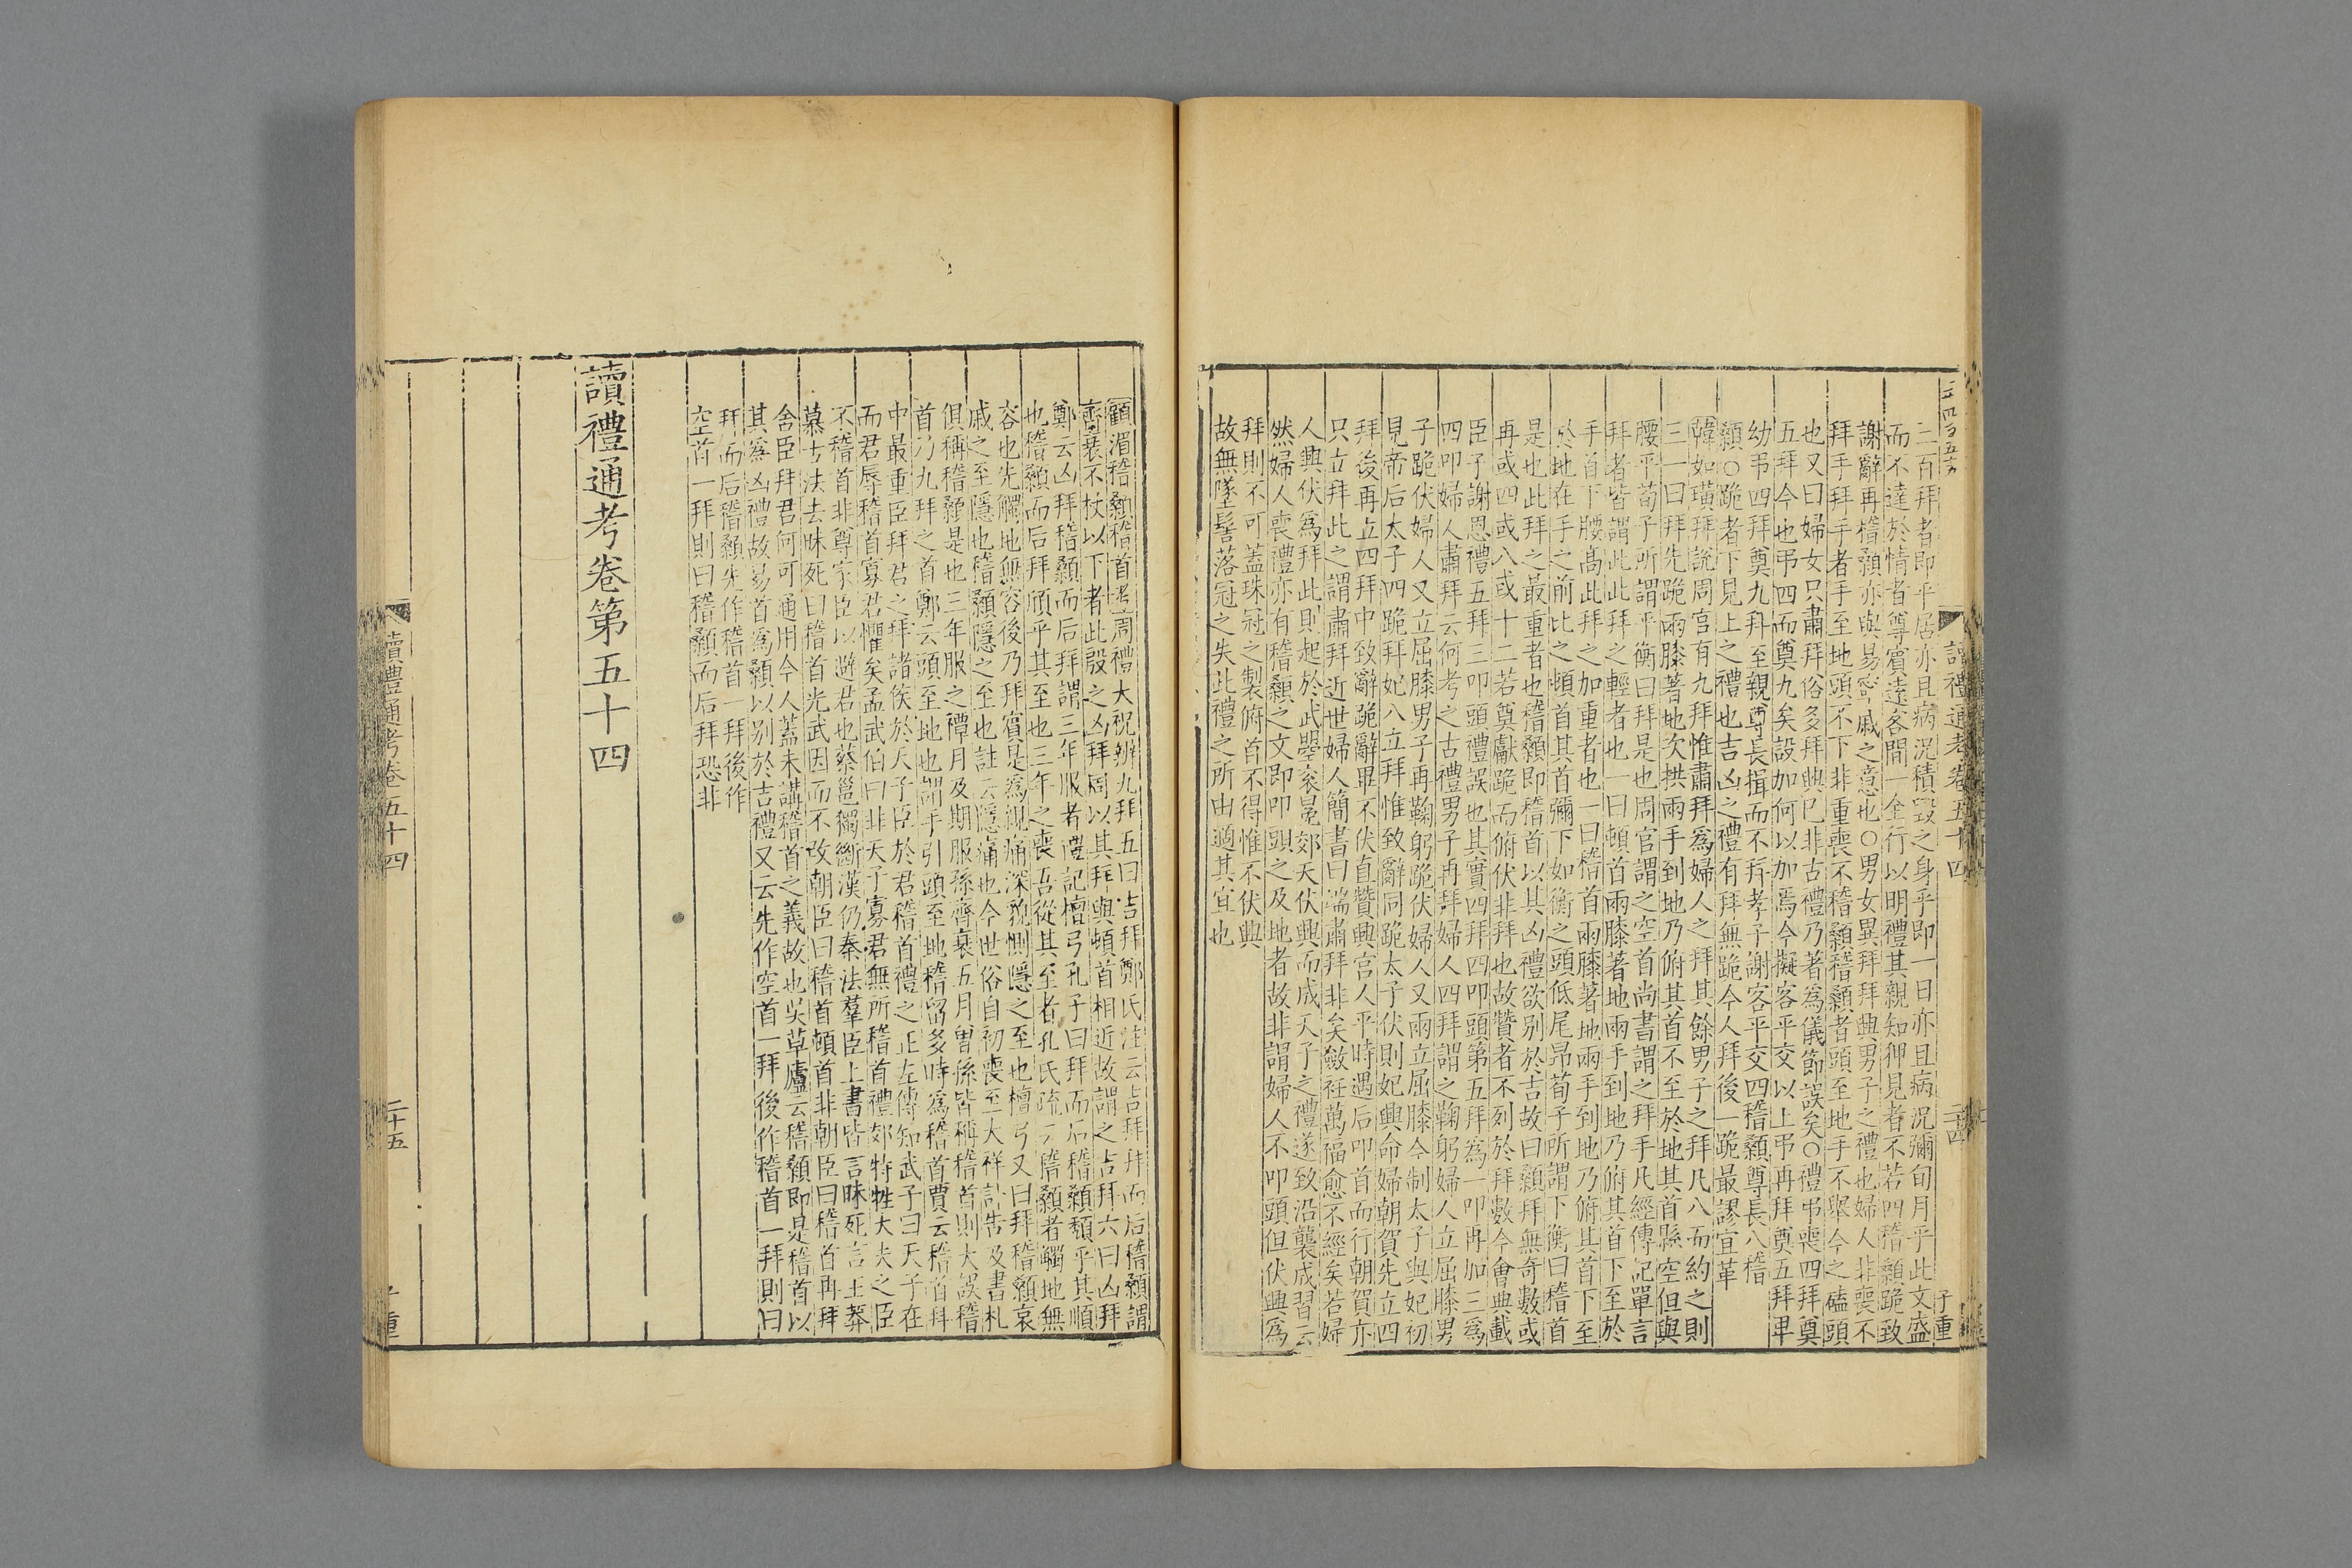 二百拜者即平居亦且病況積毀之身乎即一日亦且病況彌旬月乎此文盛
而不達於情者尊賓遠客間一全行以明禮其親知狎見者不若四稽顙跪致
謝辭再稽顙亦與易寧戚之意也〇男女異拜拜興男子之禮也婦人非喪不
拜手拜手者手至地頭不下非重喪不稽顙稽顙者頭至地手不舉今之磕頭
也又曰婦女只肅拜俗多拜興已非古禮乃著爲儀節誤矣〇禮弔喪四拜奠
五拜今也弔四而奠九矣設加何以加焉今擬客平交以上弔再拜奠五拜卑
幼弔四拜奠九拜至親尊長揖而不拜孝子謝客平交四稽顙尊長八稽
顙〇跪者下見上之禮也吉凶之禮有拜無跪今人拜後一跪最謬宜革
韓如璜拜說周官有九拜惟肅拜爲婦人之拜其餘男子之拜凡八而約之則
三一曰拜先跪兩膝著地次拱兩手到地乃俯其首不至於地其首懸空但與
腰平荀子所謂平衡曰拜是也周官謂之空首尚書謂之拜手凡經傳記單言
拜者皆謂此此拜之輕者也一曰頓首兩膝著地兩手到地乃俯其首下至於
手首下腰高此拜之加重者也一曰稽首兩膝著地兩手到地乃俯其首下至
於地在手之前比之頓首其首彌下如衡之頭低尾昂荀子所謂下衡曰稽首
是也此拜之最重者也稽顙即稽首以其凶禮欲別於吉故曰顙拜無奇數或
再或四或八或十二若奠獻跪而俯伏非拜也故贊者不列於拜數今會典載
臣子謝恩禮五拜三叩頭禮誤也其實四拜四叩頭第五拜爲一叩再加三爲
四叩婦人肅拜云何考之古禮男子再拜婦人四拜謂之鞠躬婦人立屈膝男
子跪伏婦人又立屈膝男子再鞠躬跪伏婦人又兩立屈膝今制太子與妃初
見帝后太子四跪拜妃八立拜惟致辭同跪太子伏則妃興命婦朝賀先立四
拜後再立四拜中致辭跪辭畢不伏直贊興宮人平時遇后叩首而行朝賀亦
只立拜此之謂肅拜近世婦人簡書曰端肅拜非矣斂衽萬福愈不經矣若婦
人興伏爲拜此則起於武曌袞冕郊天伏興而成天子之禮遂致沿襲成習云
然婦人喪禮亦有稽顙之文即叩頭之及地者故非謂婦人不叩頭但伏興爲
拜則不可蓋珠冠之製俯首不得惟不伏興
故無墜髻落冠之失此禮之所由適其宜也
讀禮通考卷五十四
二十四
子重
顧湄稽顙稽首考周禮大祝辨九拜五曰吉拜鄭氏注云吉拜拜而后稽顙謂
齊衰不杖以下者此殷之凶拜周以其拜與頓首相近故謂之吉拜六曰凶拜
鄭云凶拜稽顙而后拜謂三年服者禮記檀弓孔子曰拜而后稽顙頹乎其順
也稽顙而后拜頎乎其至也三年之喪吾從其至者孔氏疏云稽顙者觸地無
容也先觸地無容後乃拜賓是爲親痛深貌惻隱之至也檀弓又曰拜稽顙哀
戚之至隱也稽顙隱之至也註云隱痛也今世俗自初喪至大祥訃告及書札
俱稱稽顙是也三年服之禫月及期服孫齊衰五月曾孫皆稱稽首則大誤稽
首乃九拜之首鄭云頭至地也謂手引頭至地稽留多時爲稽首賈云稽首拜
中最重臣拜君之拜諸侯於天子臣於君稽首禮之正左傳知武子曰天子在
而君辱稽首寡君懼矣孟武伯曰非天子寡君無所稽首禮郊特牲大夫之臣
不稽首非尊家臣以避君也蔡邕獨斷漢仍秦法羣臣上書皆言昧死言王莽
慕古法去昧死曰稽首光武因而不改朝臣曰稽首頓首非朝臣曰稽首再拜
舍臣拜君何可通用今人蓋未講稽首之義故也吳草廬云稽顙即是稽首以
其爲凶禮故易首爲顙以別於吉禮又云先作空首一拜後作稽首一拜則曰
拜而后稽顙先作稽首一拜後作
空首一拜則曰稽顙而后拜恐非
讀禮通考卷第五十四
讀禮通考卷五十四
二十五
子重